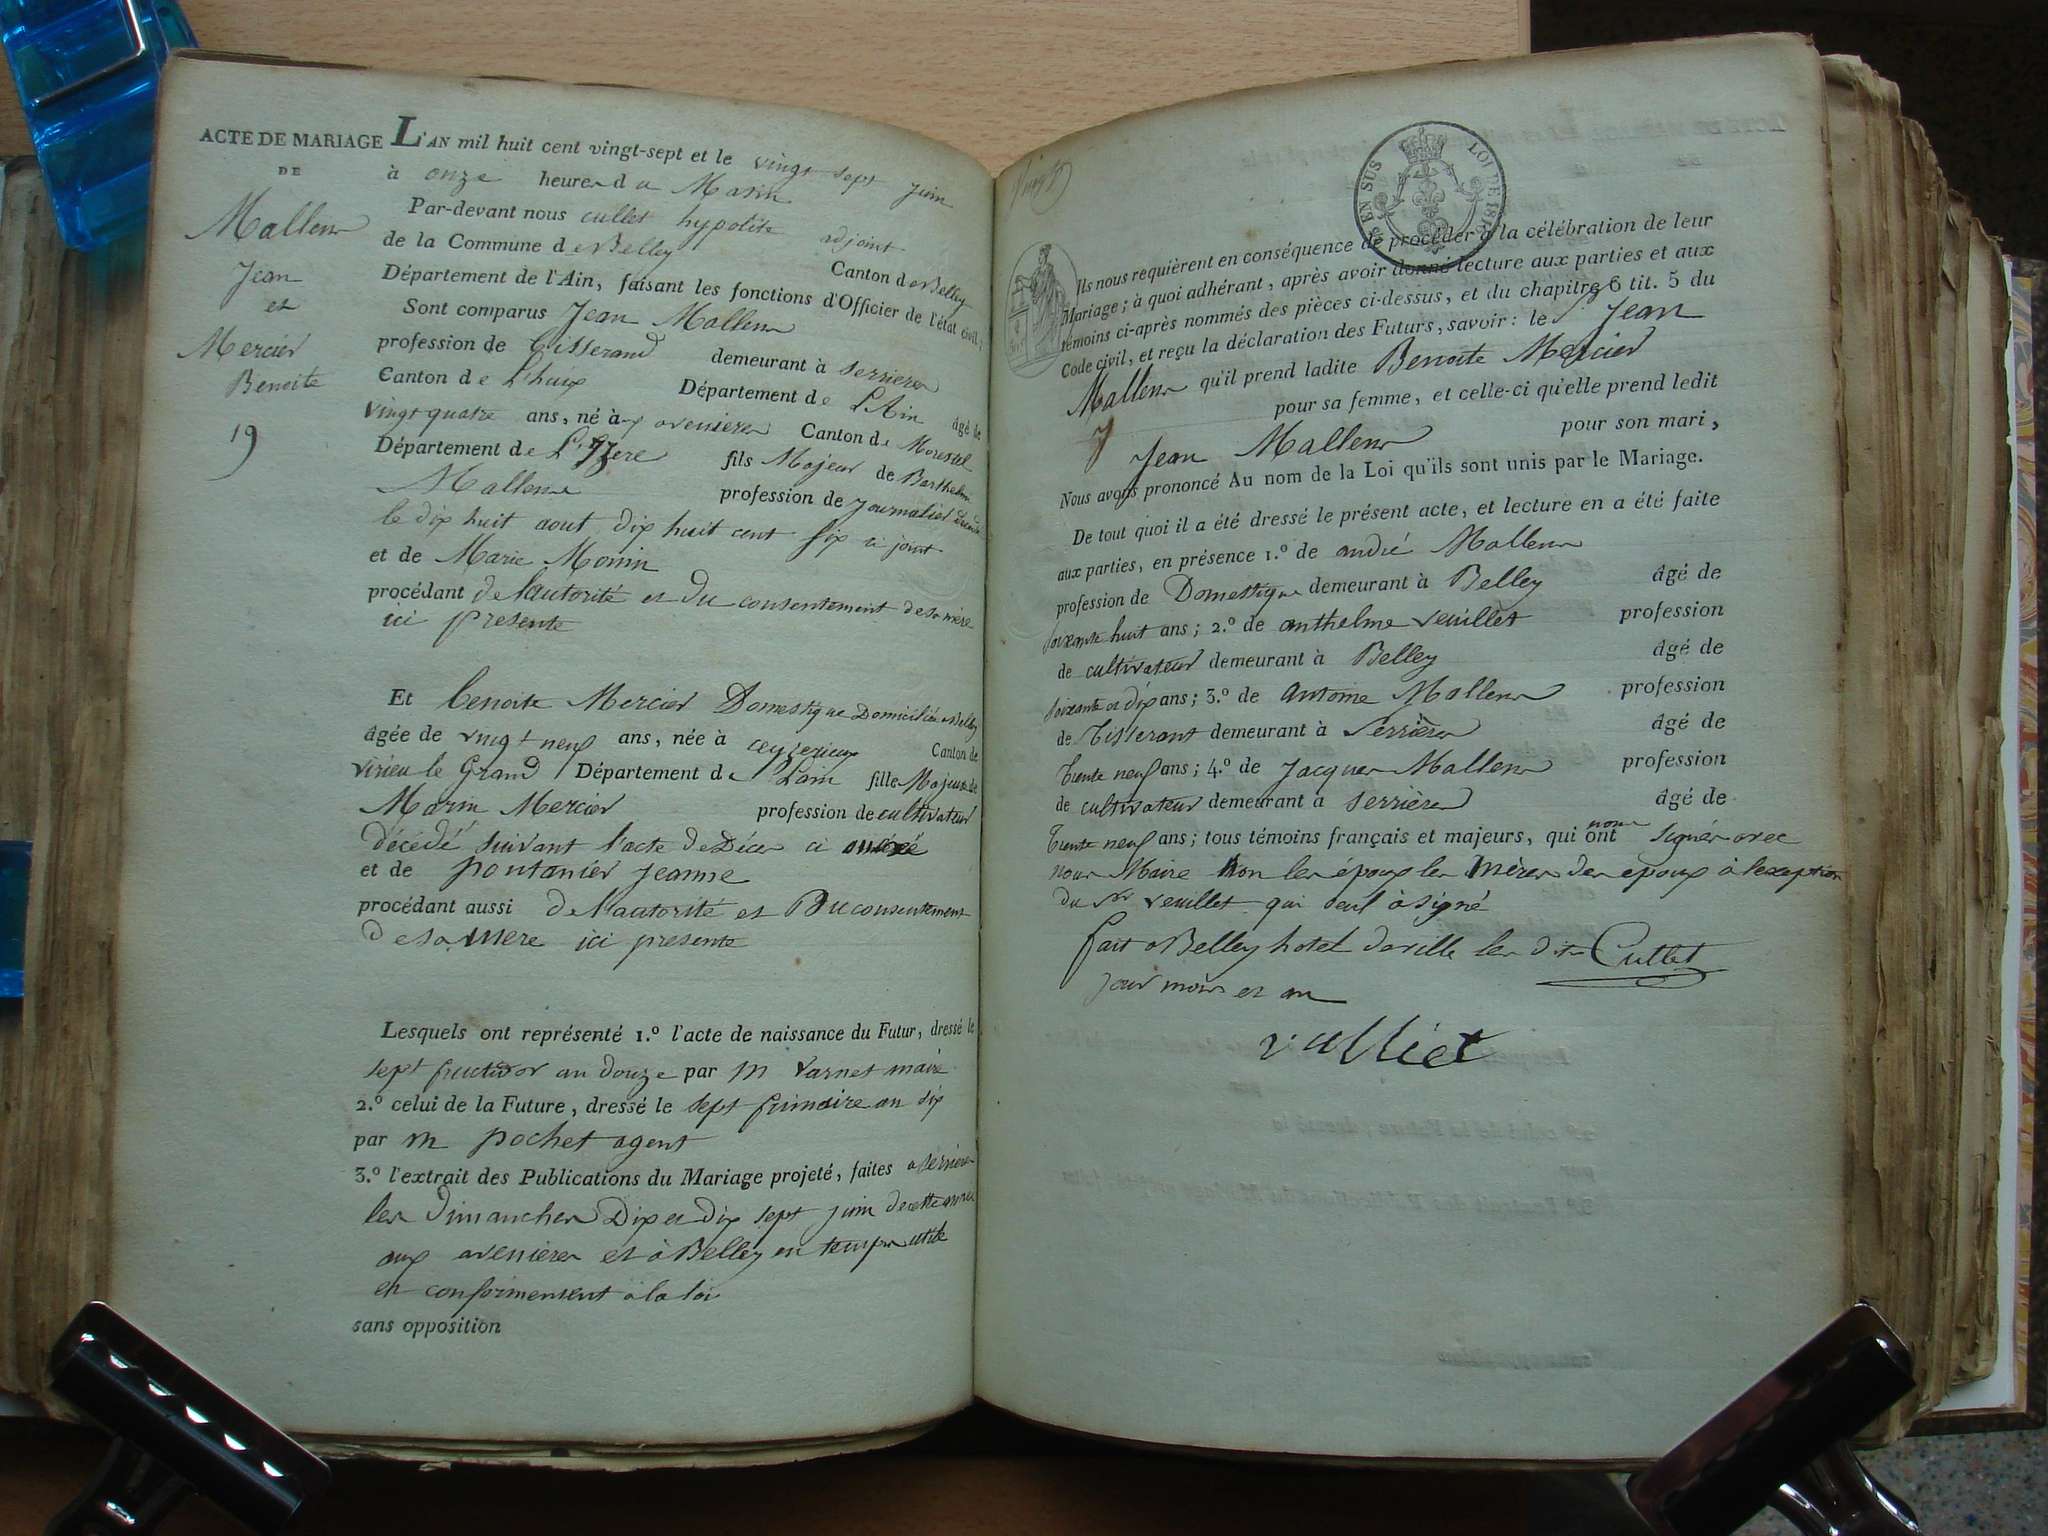 ACTE DE MARIAGE
DE
Mallen
Jean
et
Mercier
Benoite
19
L'AN mil huit cent vingt-sept et le vingt sept juin
à onze heures du Matin
Par-devant nous cullet hypolite adjoint
de la Commune de Belley Canton de Belley
Département de l'Ain, faisant les fonctions d'Officier de l'état civil;
Sont comparus Jean Mallen
profession de tisserand demeurant à serrieres
Canton de L'huis Département de L'Ain âgé de
vingt quatre ans, né à aux avenieres Canton de Morestel
Département de L'Izere fils Majeur de Barthelmi
Mallen profession de Journalier Decedé
le dix huit aout dix huit cent six ci joint
et de Marie Monin
procédant de l'autorité et du consentement de sa mère
ici presente
Et benoite Mercier Domestique Domiciliée a Belley
âgée de vingt neuf ans, née à ceyzerieux Canton de
virieu le Grand Département de L'ain fille Majeure de
Marin Mercier profession de cultivateur
décédé suivant l'acte de Déces ci
et de pontanier jeanne
procédant aussi de l'autorité et Du consentement
de sa mere ici presente
Lesquels ont représenté 1.º l'acte de naissance du Futur, dressé le
sept fructidor an douze par m varnet maire
2.º celui de la Future, dressé le sept frimaire an six
par m pochet agent
3.º l'extrait des Publications du Mariage projeté, faites a serrieres
les Dimanches Dix et dix sept juin de cette année
aux avenieres et à Belley en temps utile
et conformement à la loi
sans opposition
EN SUS LOI DE 1816
Ils nous requièrent en conséquence de procéder à la célébration de leur
Mariage; à quoi adhérant, après avoir donné lecture aux parties et aux
témoins ci-après nommés des pièces ci-dessus, et du chapitre 6 tit. 5 du
Code civil, et reçu la déclaration des Futurs, savoir: le Sr Jean
Mallen qu'il prend ladite Benoite Mercier
pour sa femme, et celle-ci qu'elle prend ledit
Jean Mallen pour son mari,
Nous avons prononcé Au nom de la Loi qu'ils sont unis par le Mariage.
De tout quoi il a été dressé le présent acte, et lecture en a été faite
aux parties, en présence 1.º de andré Mallen
profession de Domestique demeurant à Belley âgé de
soixante huit ans; 2.º de anthelme veuillet profession
de cultivateur demeurant à Belley âgé de
soixante et dix ans; 3.º de antoine Mallen profession
de Tisserant demeurant à Serrières âgé de
trente neuf ans; 4.º de Jacques Mallen profession
de cultivateur demeurant à serrières âgé de
trente neuf ans; tous témoins français et majeurs, qui ont non signés avec
nous Maire non les époux les mères des epoux à l'exception
du Sr veuillet qui seul à signé
fait a Belley hotel de ville les dits Cullet
jour mois et an
vulliet